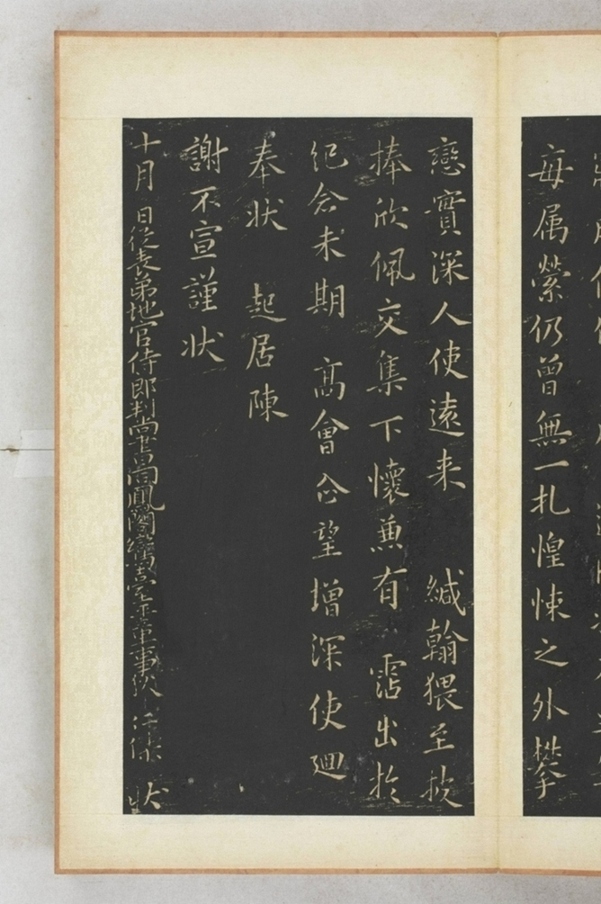 每属縈仍曾無一札惶悚之外攀
戀實深人使遠来 緘翰猥至披
捧欣佩交集下懷蕙有 霑出於
紀念未期 髙會企望增深使廻
奉状 起居陳
謝不宣謹状
十月 日從表弟地官侍郎判尚書 鳳閣鸞臺 章事 任 状